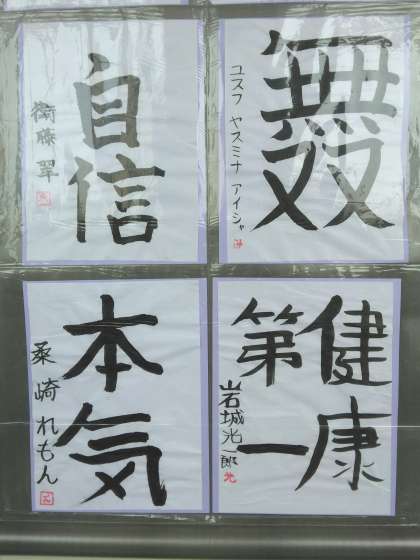 自信
衛藤 翠
無双
ユスフ ヤスミナ アイシャ
本気
桑崎 れもん
健康
第一
岩城光一郎
光